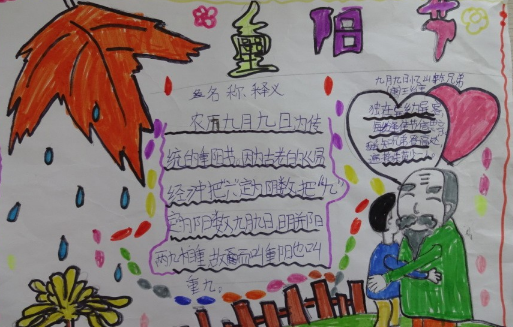 重阳节
名称释义
农历九月九日为传
统的重阳节,因为古老的《易
经》中把"六"定为阴数,把"九"
定为阳数,九月九日,日月并阳
两九相重,故而叫重阳,也叫
重九。
九月九日忆山东兄弟
独在异乡为异客
每逢佳节倍思亲